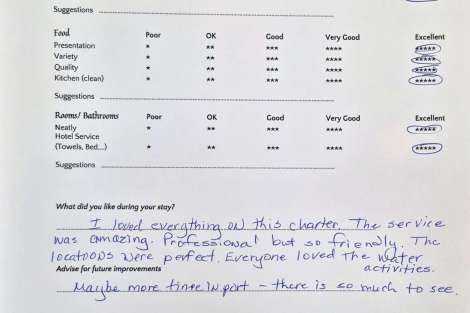 Suggestions
Food Poor OK Good Very Good Excellent
Presentation * ** *** **** *****
Variety * ** *** **** *****
Quality * ** *** **** *****
Kitchen (clean) * ** *** **** *****
Suggestions
Rooms/ Bathrooms Poor OK Good Very Good Excellent
Neatly * ** *** **** *****
Hotel Service
(Towels, Bed...) * ** *** **** *****
Suggestions
What did you like during your stay?
I loved everything on this charter. The service
was amazing. Professional but so friendly. The
locatoons were perfect. Everyone loved the water
activities.
Advise for future improvements
Maybe more time in port - there is so much to see.